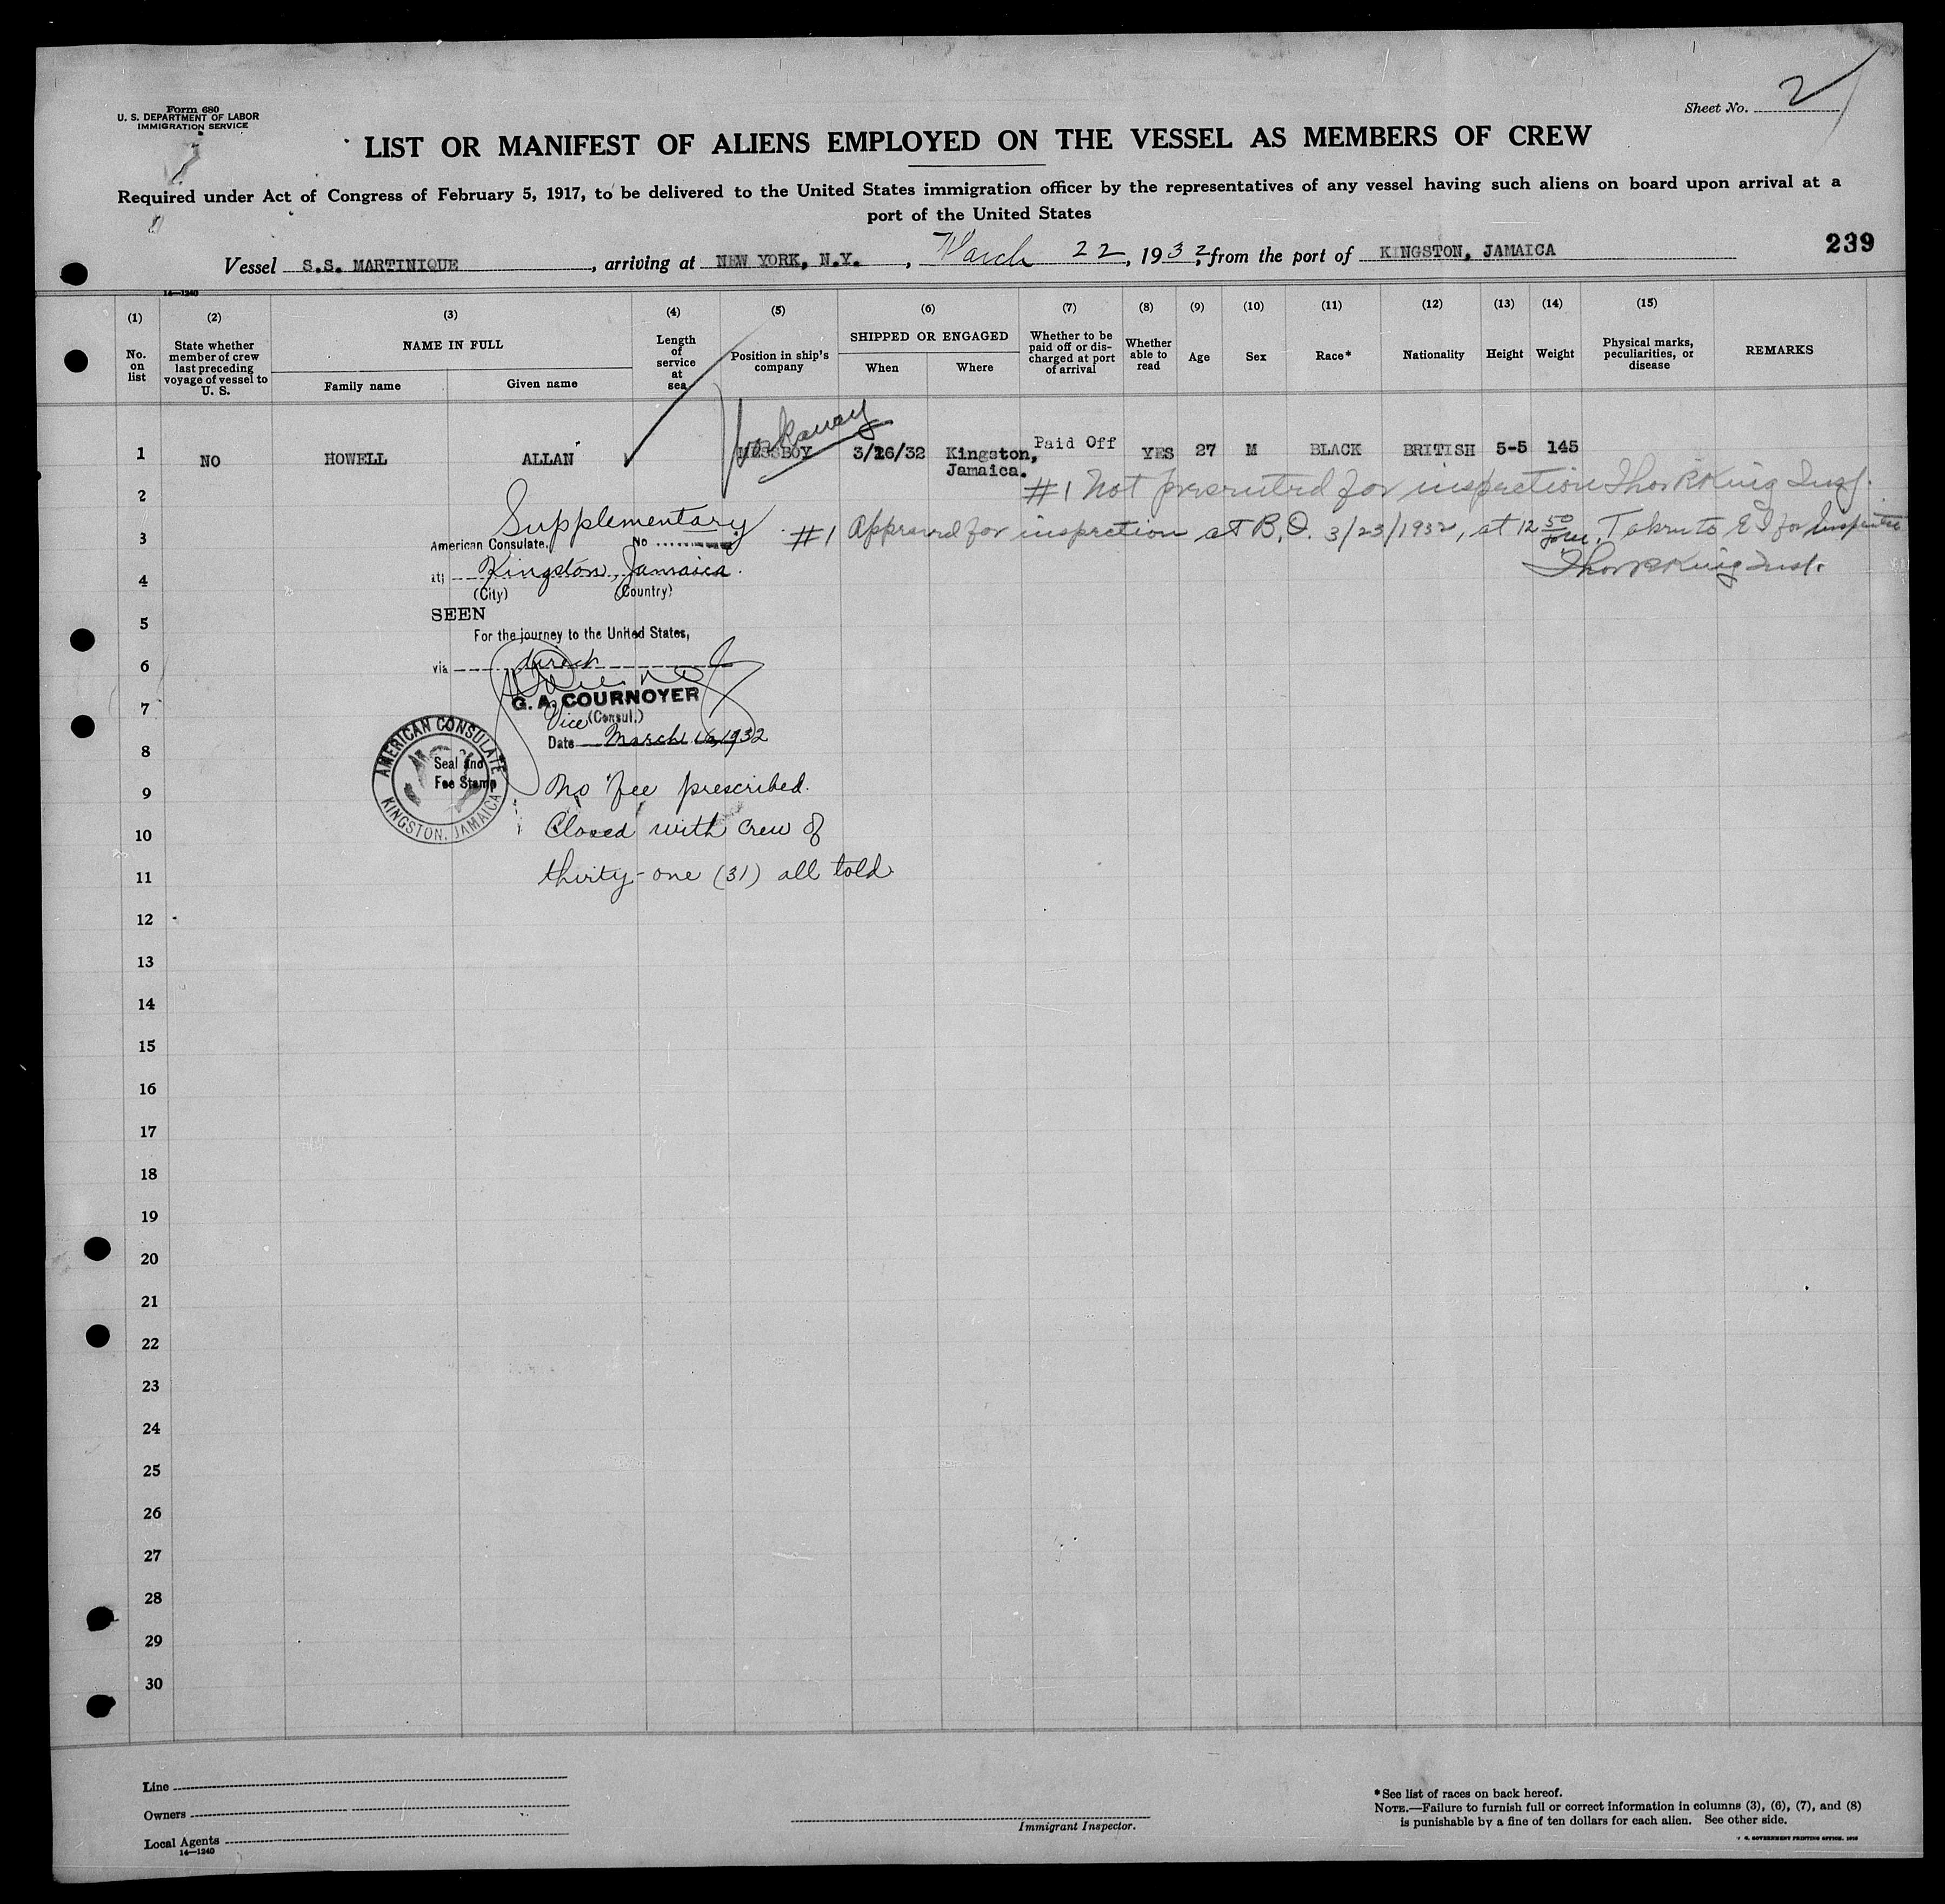 Form 680
U. S. DEPARTMENT OF LABOR
IMMIGRATION SERVICE
Sheet No. 2
LIST OR MANIFEST OF ALIENS EMPLOYED ON THE VESSEL AS MEMBERS OF CREW
Required under Act of Congress of February 5, 1917, to be delivered to the United States immigration officer by the representatives of any vessel having such aliens on board upon arrival at a
port of the United States
239
Vessel S.S. MARTINIQUE, arriving at NEW YORK, N.Y., March 22, 1932, from the port of KINGSTON, JAMAICA
14—1240
(1) No. on list
(2) State whether member of crew last preceding voyage of vessel to U. S.
(3) NAME IN FULL
Family name Given name
(4) Length of service at sea
(5) Position in ship's company
(6) SHIPPED OR ENGAGED
When Where
(7) Whether to be paid off or discharged at port of arrival
(8) Whether able to read
(9) Age
(10) Sex
(11) Race*
(12) Nationality
(13) Height
(14) Weight
(15) Physical marks, peculiarities, or disease
REMARKS
Workaway
1 NO HOWELL ALLAN MESSBOY 3/16/32 Kingston, Jamaica. Paid Off YES 27 M BLACK BRITISH 5-5 145
2 #1 Not presented for inspection Thor King Insp.
Supplementary
3 #1 Appeared for inspection at B.O. 3/23/1932, at 12 50 Taken to E I for Inspection
American Consulate, No
Thor King Insp.
4 at Kingston, Jamaica.
(City) (Country)
SEEN
5
For the journey to the United States,
6 via direct
G. A. COURNOYER
7 Vice (Consul.)
Date March 16, 1932
8
AMERICAN CONSULATE
KINGSTON, JAMAICA
Seal and
Fee Stamp
9 No fee prescribed.
10 Closed with crew of
11 thirty-one (31) all told
12
13
14
15
16
17
18
19
20
21
22
23
24
25
26
27
28
29
30
Line
Owners
Local Agents
14—1240
Immigrant Inspector.
*See list of races on back hereof.
NOTE.—Failure to furnish full or correct information in columns (3), (6), (7), and (8)
is punishable by a fine of ten dollars for each alien. See other side.
GOVERNMENT PRINTING OFFICE